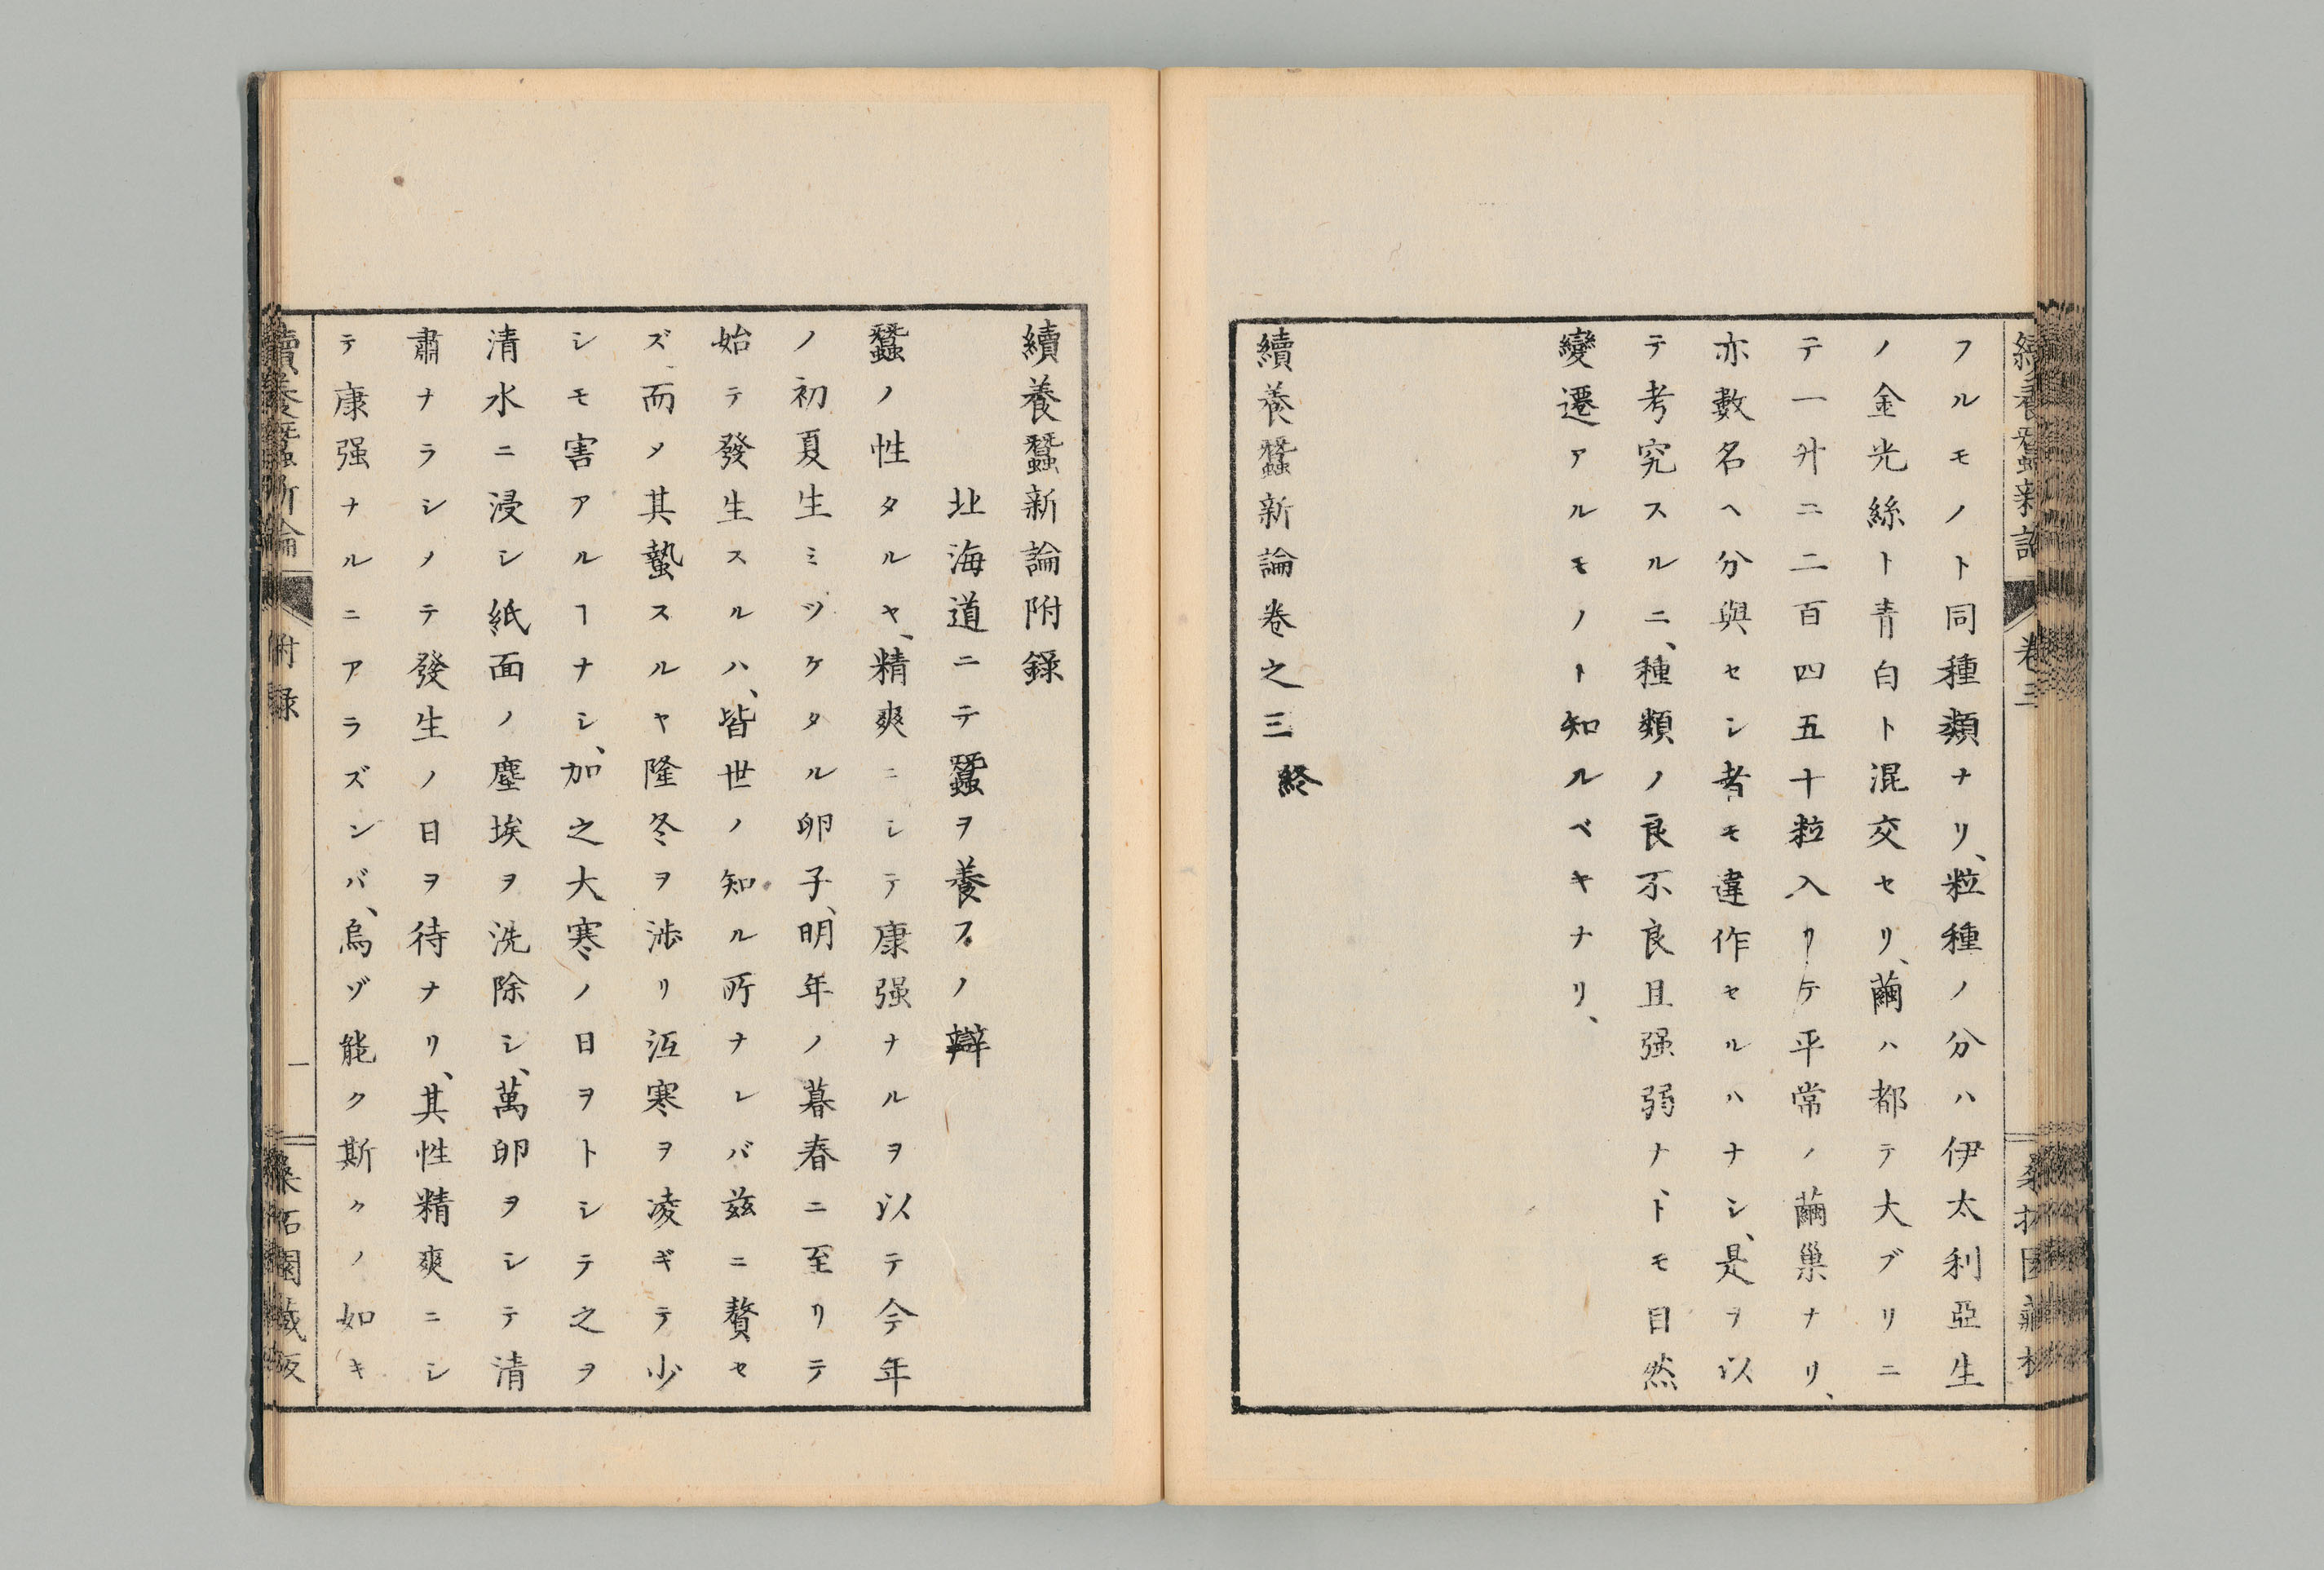 フルモノト同種類ナリ、粒種ノ分ハ伊太利亞生
ノ金光絲ト青白ト混交セリ、繭ハ都テ大ブリニ
テ一升ニ二百四五十粒入リテ平常ノ繭巢ナリ、
亦數名ヘ分與セシ者モ違作セルハナシ、是ヲ以
テ考究スルニ、種類ノ良不良且强弱ナ、ドモ自然
變遷アルモノト知ルベキナリ、
續養蠶新論卷之三終
續養蠶新論附錄
北海道ニテ蠶ヲ養フノ辯
蠶ノ性タルヤ、精爽ニシテ康强ナルヲ以テ今年
ノ初夏生ミツケタル卵子、明年ノ暮春ニ至リテ
始テ發生スルハ、皆世ノ知ル所ナレバ兹ニ贅セ
ズ、而メ其蟄スルヤ隆冬ヲ涉リ沍寒ヲ凌ギテ少
シモ害アルヿナシ、加之大寒ノ日ヲトシテ之ヲ
清水ニ浸シ紙面ノ塵埃ヲ洗除シ、萬卵ヲシテ清
肅ナラシメテ發生ノ日ヲ待ナリ、其性精爽ニシ
テ康强ナルニアラズンバ、烏ゾ能ク斯クノ如キ
續養蠶新論 附錄 一 桑柘園藏版